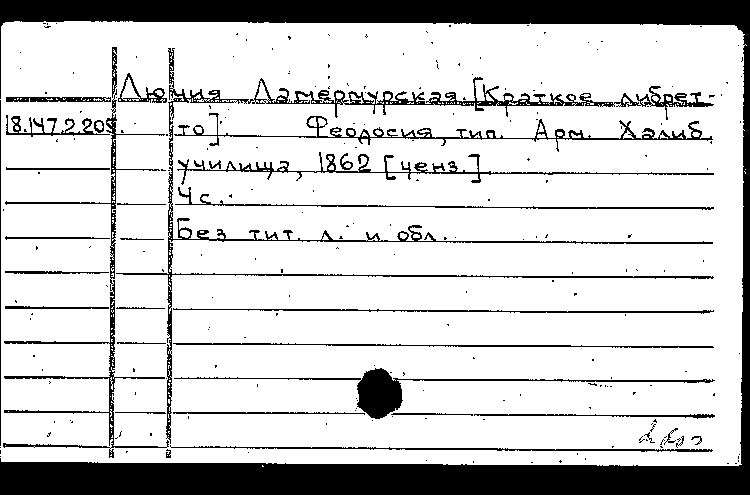 Лючия Ламермурская. [Краткое либрет-
18.147.2.205. то]. Феодосия, тип. Арм. Халиб.
училища, 1862 [ценз.]
4 с.
Без тит. л. и обл.